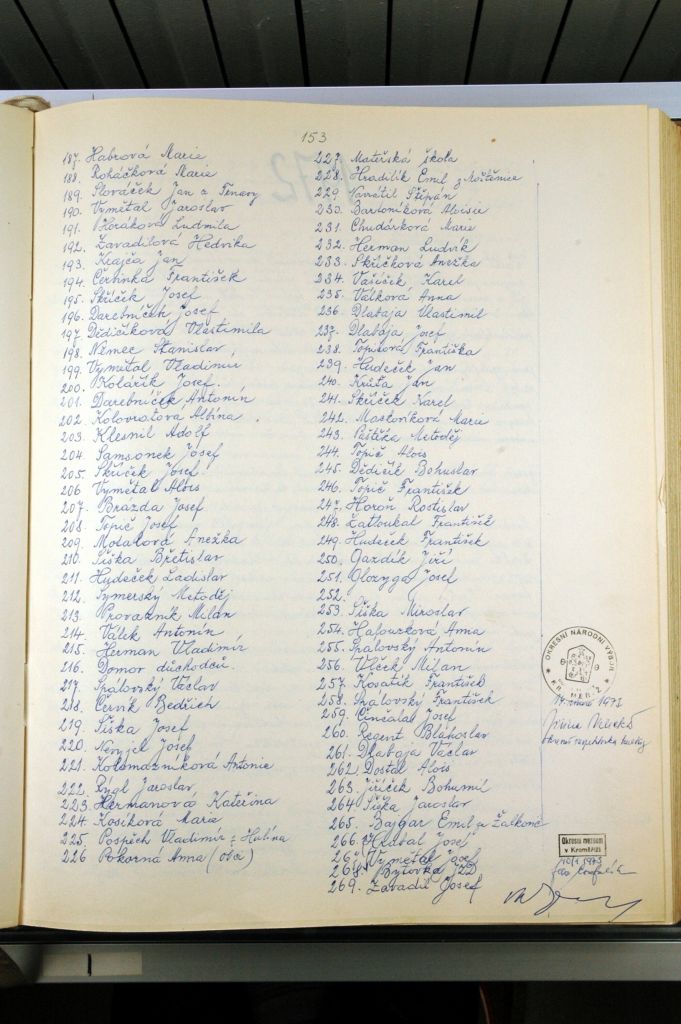 153
187. Habrová Marie
188. Roháčková Marie
189. Slováček Jan z Trnavy
190. Vymětal Jaroslav
191. Horáková Ludmila
192. Zavadilová Hedvika
193. Krajča Jan
194. Červinka František
195. Skříček Josef
196. Darebníček Josef
197. Dědičíková Vlastimila
198. Němec Stanislav
199. Vymětal Vladimír
200. Kolářík Josef.
201. Darebníček Antonín
202. Kolovratová Albína
203. Klesnil Adolf
204. Samsonek Josef
205. Skříček Josef
206 Vymětal Alois
207. Brázda Josef
208. Topič Josef
209. Motalová Anežka
210. Šiška Břetislav
211. Hudeček Ladislav
212. Symerský Metoděj
213. Provazník Milan
214. Válek Antonín
215. Herman Vladimír
216. Domov důchodců.
217. Spálovský Václav
218. Červík Bedřich
219. Šiška Josef
220. Josef
221. Kolomazníková Antonie
222. Rýgl Jaroslav
223. Hermanová Kateřina
224. Kosíková Marie
225. Pospěch Vladimír z Hulína
226 Pokorná Anna (ošč)
227. Mateřská škola
228. Hradilík Emil z
229. Navrátil Štěpán
230. Bartoníková Aloisie
231. Chudárková Marie
232. Herman Ludvík
233. Skříčková Anežka
234. Vašíček Karel
235. Válková Anna
236. Dlabaja Vlastimil
237. Dlabaja Josef
238. Topičová Františka
239. Hudeček Jan
240. Krůta Jan
241. Skříček Karel
242. Mastoníková Marie
243. Paštika Metoděj
244. Topič Alois
245. Dědičík Bohuslav
246. Topič František
247. Horoň Rostislav
248. Zatloukal František
249. Hudeček František
250. Gazdík Jiří
251. Josef
252.
253. Šiška Miroslav
254. Hafourková Anna
255. Spálovský Antonín
256. Vlček Milan
257. Kosatík František
258. Spálovský František
259. Činčala Josef
260. Regent Blahoslav
261. Dlabaja Václav
262. Dostál Alois
263. Jiříček Bohumil
264 Šiška Jaroslav
265. Bajgar Emil ze Žalkovic
266. Hrabal Josef
267. Vymětal Josef
268. Bytovka JZD
269. Zavadil Josef
OKRESNÍ NÁRODNÍ VÝBOR
1973
Okresní museum
v Kroměříži
10/1 1973